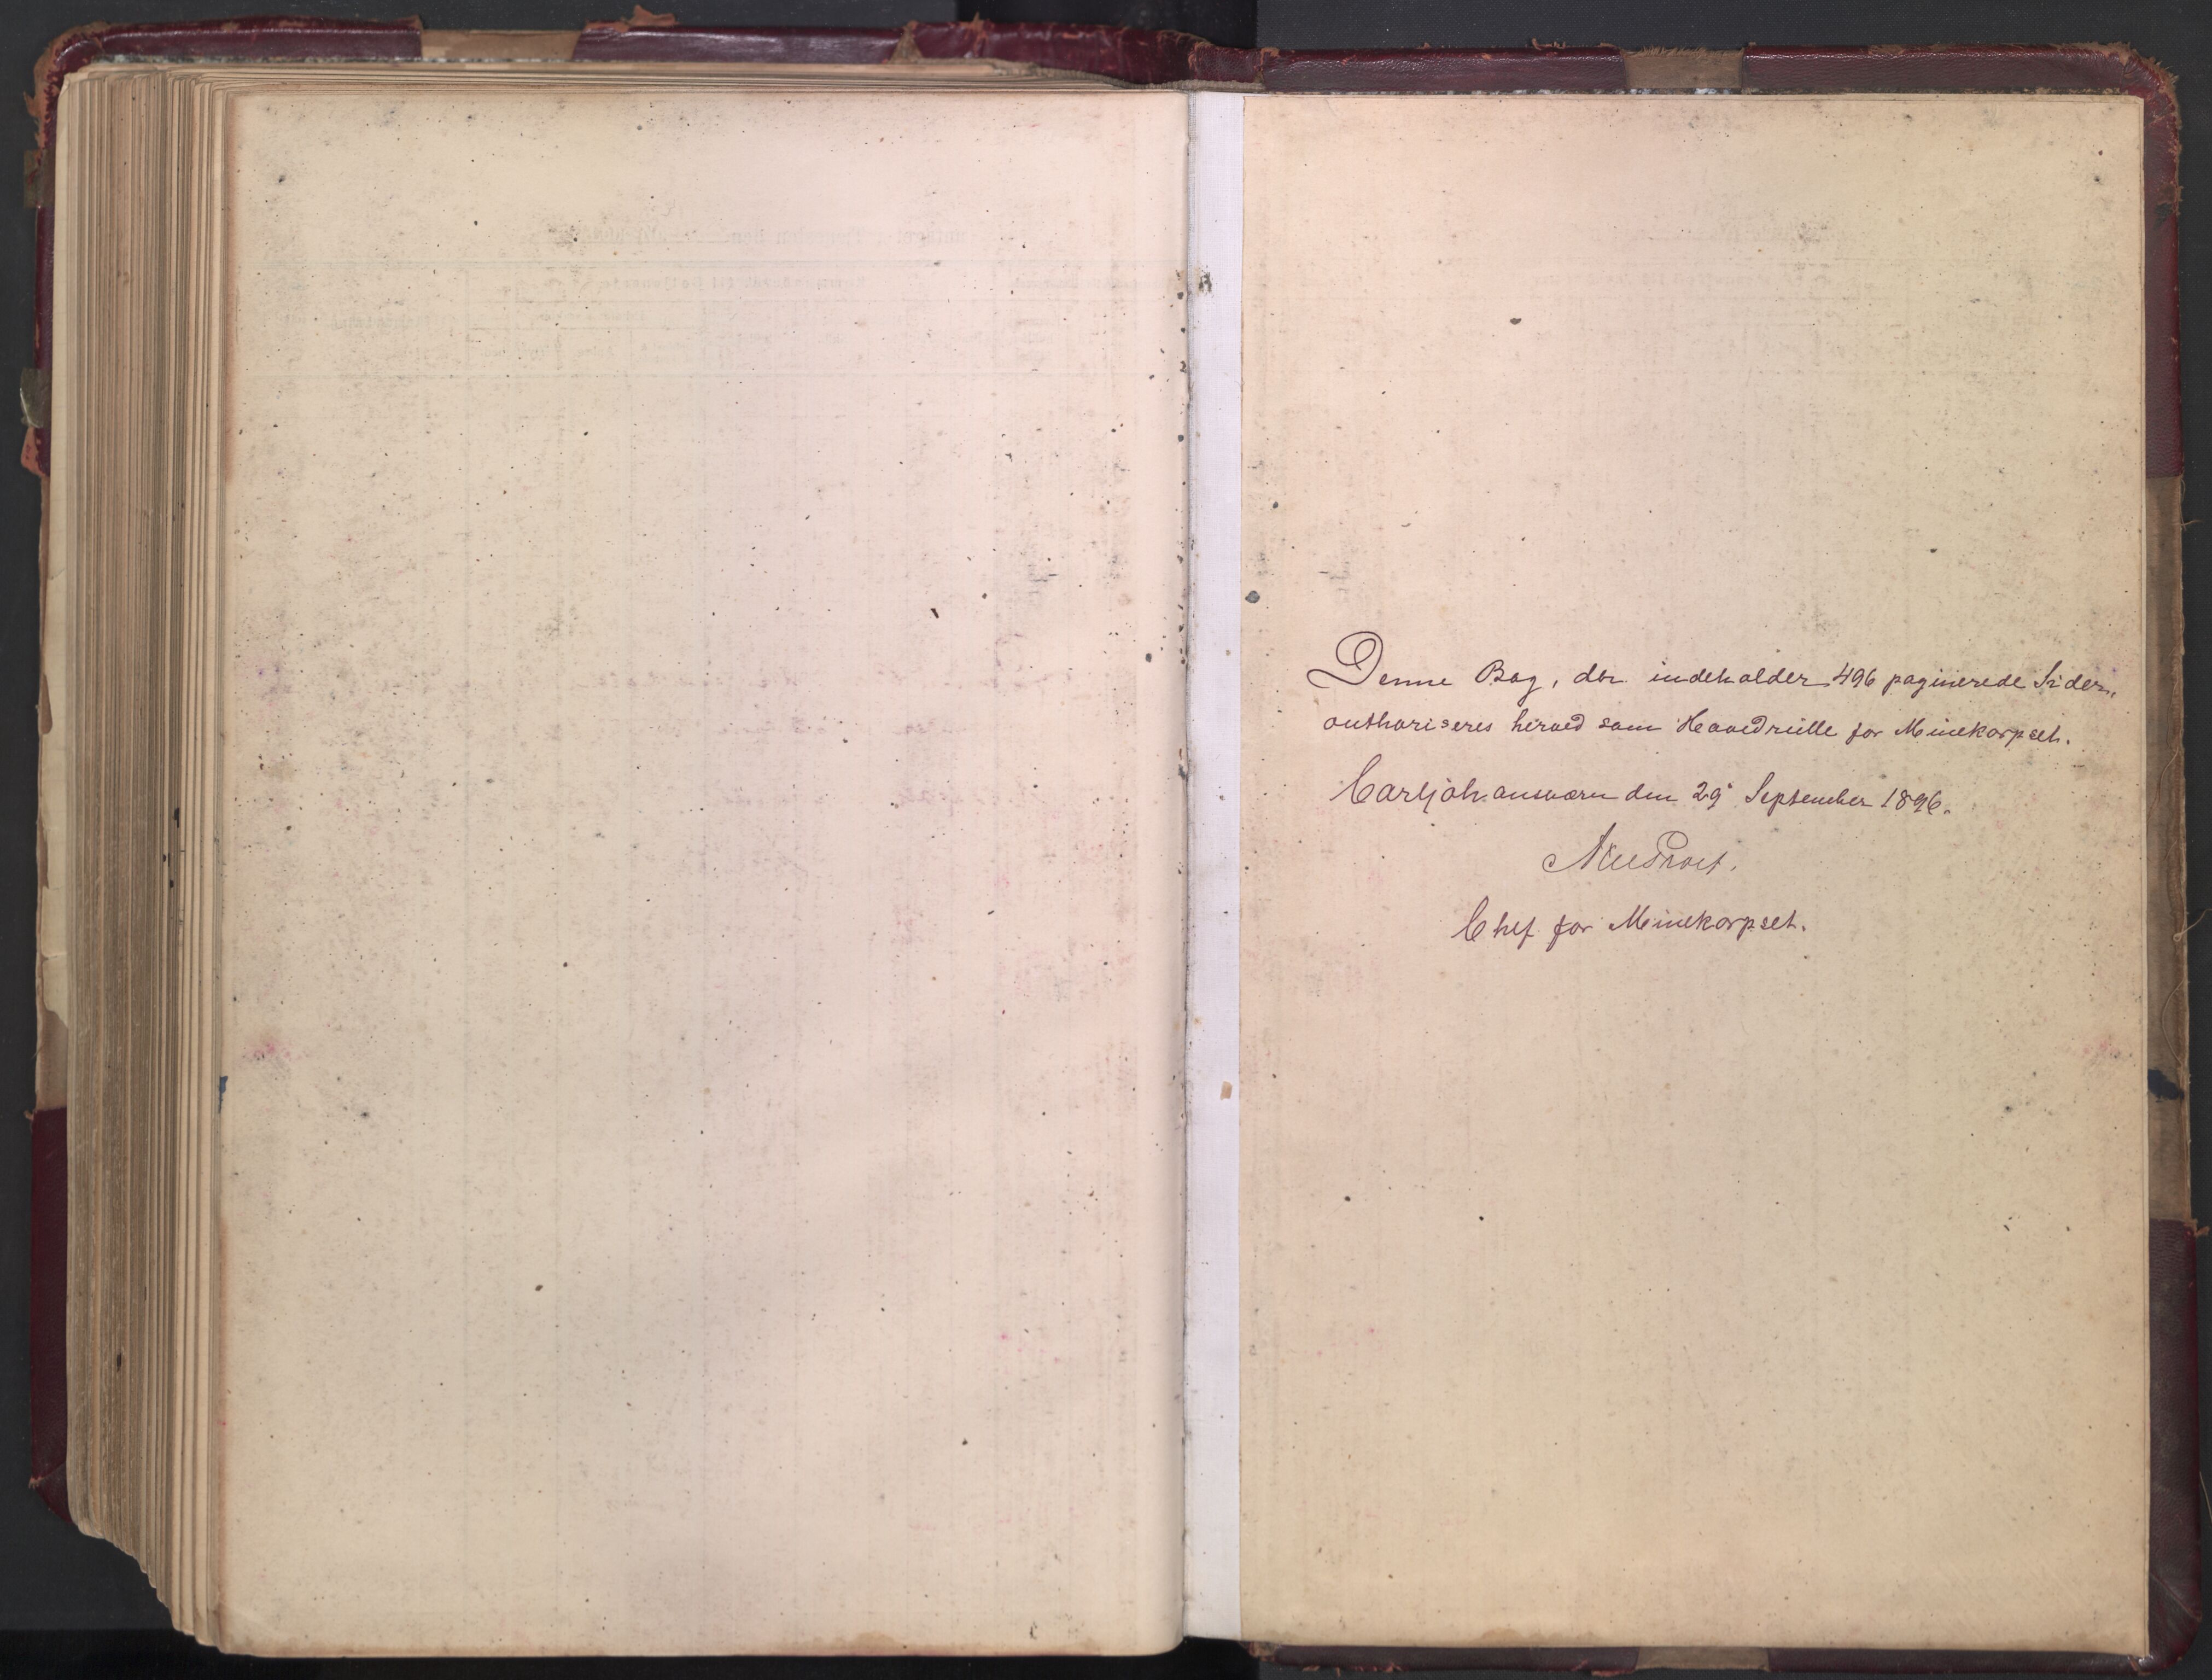 Denne Bog, der indeholder 496 paginerede Sider,
authoriseres herved som Hovedrulle for Minekorpset.
Carljohansværn den 29' September 1896.
Chef for Minekorpset.